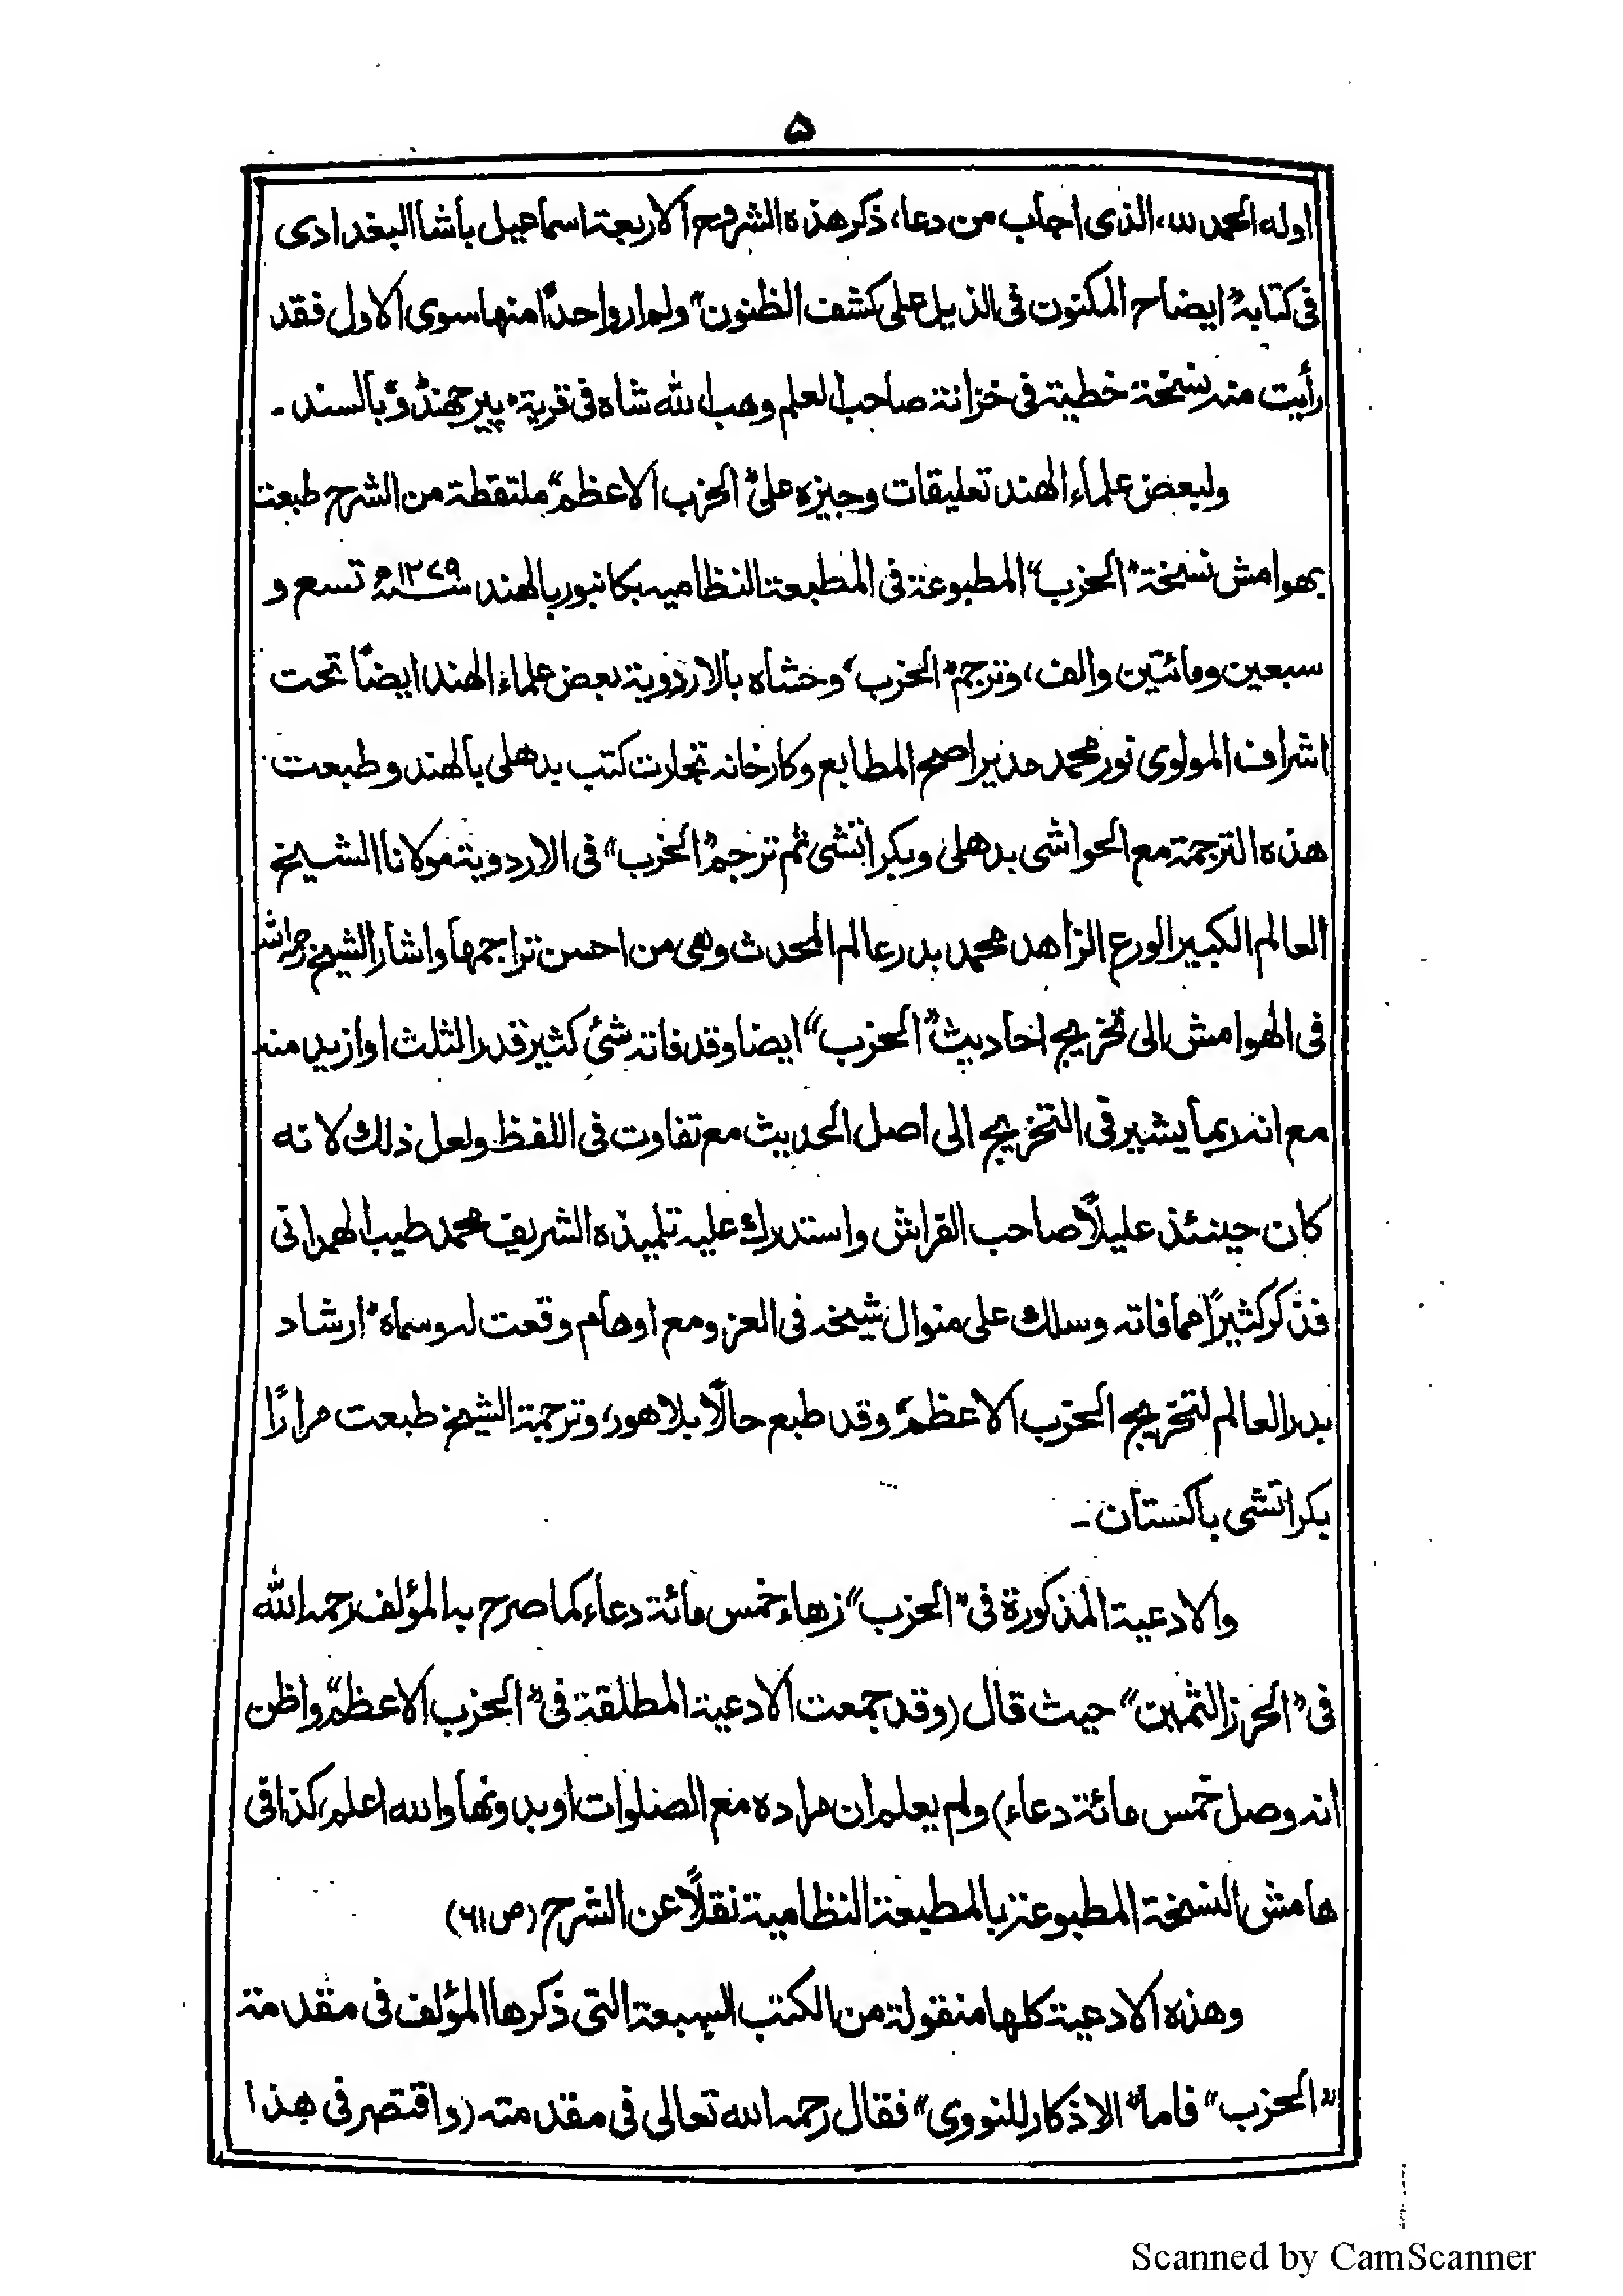 ۵
اوله الحمد لله، الذى اجاب من دعا، ذكر هذه الشروح الاربعة اسماعيل باشا البغدادى
فى كتابه "ايضاح المكنون فى الذيل على كشف الظنون" ولم ار واحدًا منها سوى الاول فقد
رأيت منه نسخة خطية فى خزانة صاحب العلم وهب الله شاه فى قرية "پير جهنڈو" بالسند -
ولبعض علماء الهند تعليقات وجيزه على "الحزب الاعظم" ملتقطة من الشرح طبعت
بهوامش نسخة "الحزب" المطبوعة فى المطبعة النظاميه بكانبور بالهند سنة ١٢٧٩ھ تسع و
سبعين ومائتين والف، وترجم "الحزب" وحشاه بالاردوية بعض علماء الهند ايضًا تحت
اشراف المولوى نور محمد مدير اصح المطابع وكارخانه تجارت كتب بدهلى بالهند وطبعت
هذه الترجمة مع الحواشى بدهلى وبكراتشى ثم ترجم "الحزب" فى الاردوية مولانا الشيخ
العالم الكبير الورع الزاهد محمد بدر عالم المحدث وهى من احسن تراجمها واشار الشيخ رحمه الله
فى الهوامش الى تخريج احاديث "الحزب" ايضا وقد فاته شئ كثير قدر الثلث او ازيد منه
مع انه ربما يشير فى التخريج الى اصل الحديث مع تفاوت فى اللفظ ولعل ذلك لانه
كان حينئذ عليلًا صاحب الفراش واستدرك عليه تلميذه الشريف محمد طيب الهمدانى
فذكر كثيرًا مما فاته وسلك على منوال شيخه فى العزو مع اوهام وقعت له وسماه "ارشاد
بدر العالم لتخريج الحزب الاعظم" وقد طبع حالًا بلاهور، وترجمة الشيخ طبعت مرارًا
بكراتشى باكستان -
والادعية المذكورة فى "الحزب" زهاء خمس مائة دعاء كما صرح به المؤلف رحمه الله
فى "الحرز الثمين" حيث قال (وقد جمعت الادعية المطلقة فى "الحزب الاعظم" واظن
انه وصل خمس مائة دعاء) ولم يعلم ان مراده مع الصلوات او بدونها والله اعلم، كذا فى
هامش النسخة المطبوعة بالمطبعة النظامية نقلًا عن الشرح (ص ٦١)
وهذه الادعية كلها منقولة من الكتب السبعة التى ذكرها المؤلف فى مقدمة
"الحزب" فاما "الاذكار للنووى" فقال رحمه الله تعالى فى مقدمته (واقتصر فى هذا
Scanned by CamScanner